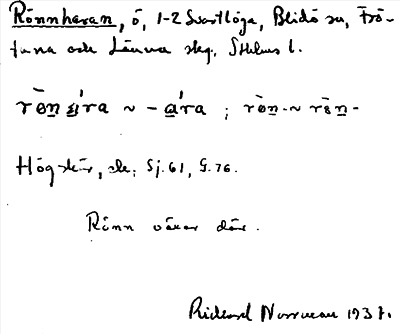 Rönnharan, ö, 1-2 Svartlöga, Blidö sn, Frö-
tuna och Länna skg, Sthlms l.
rön ạ́ra ~ - ạ́ra ; rön- ~ rön-
Högskär, ek. Sj. 61, G. 76.
Rönn växer där.
Rickard Norrman 1937.